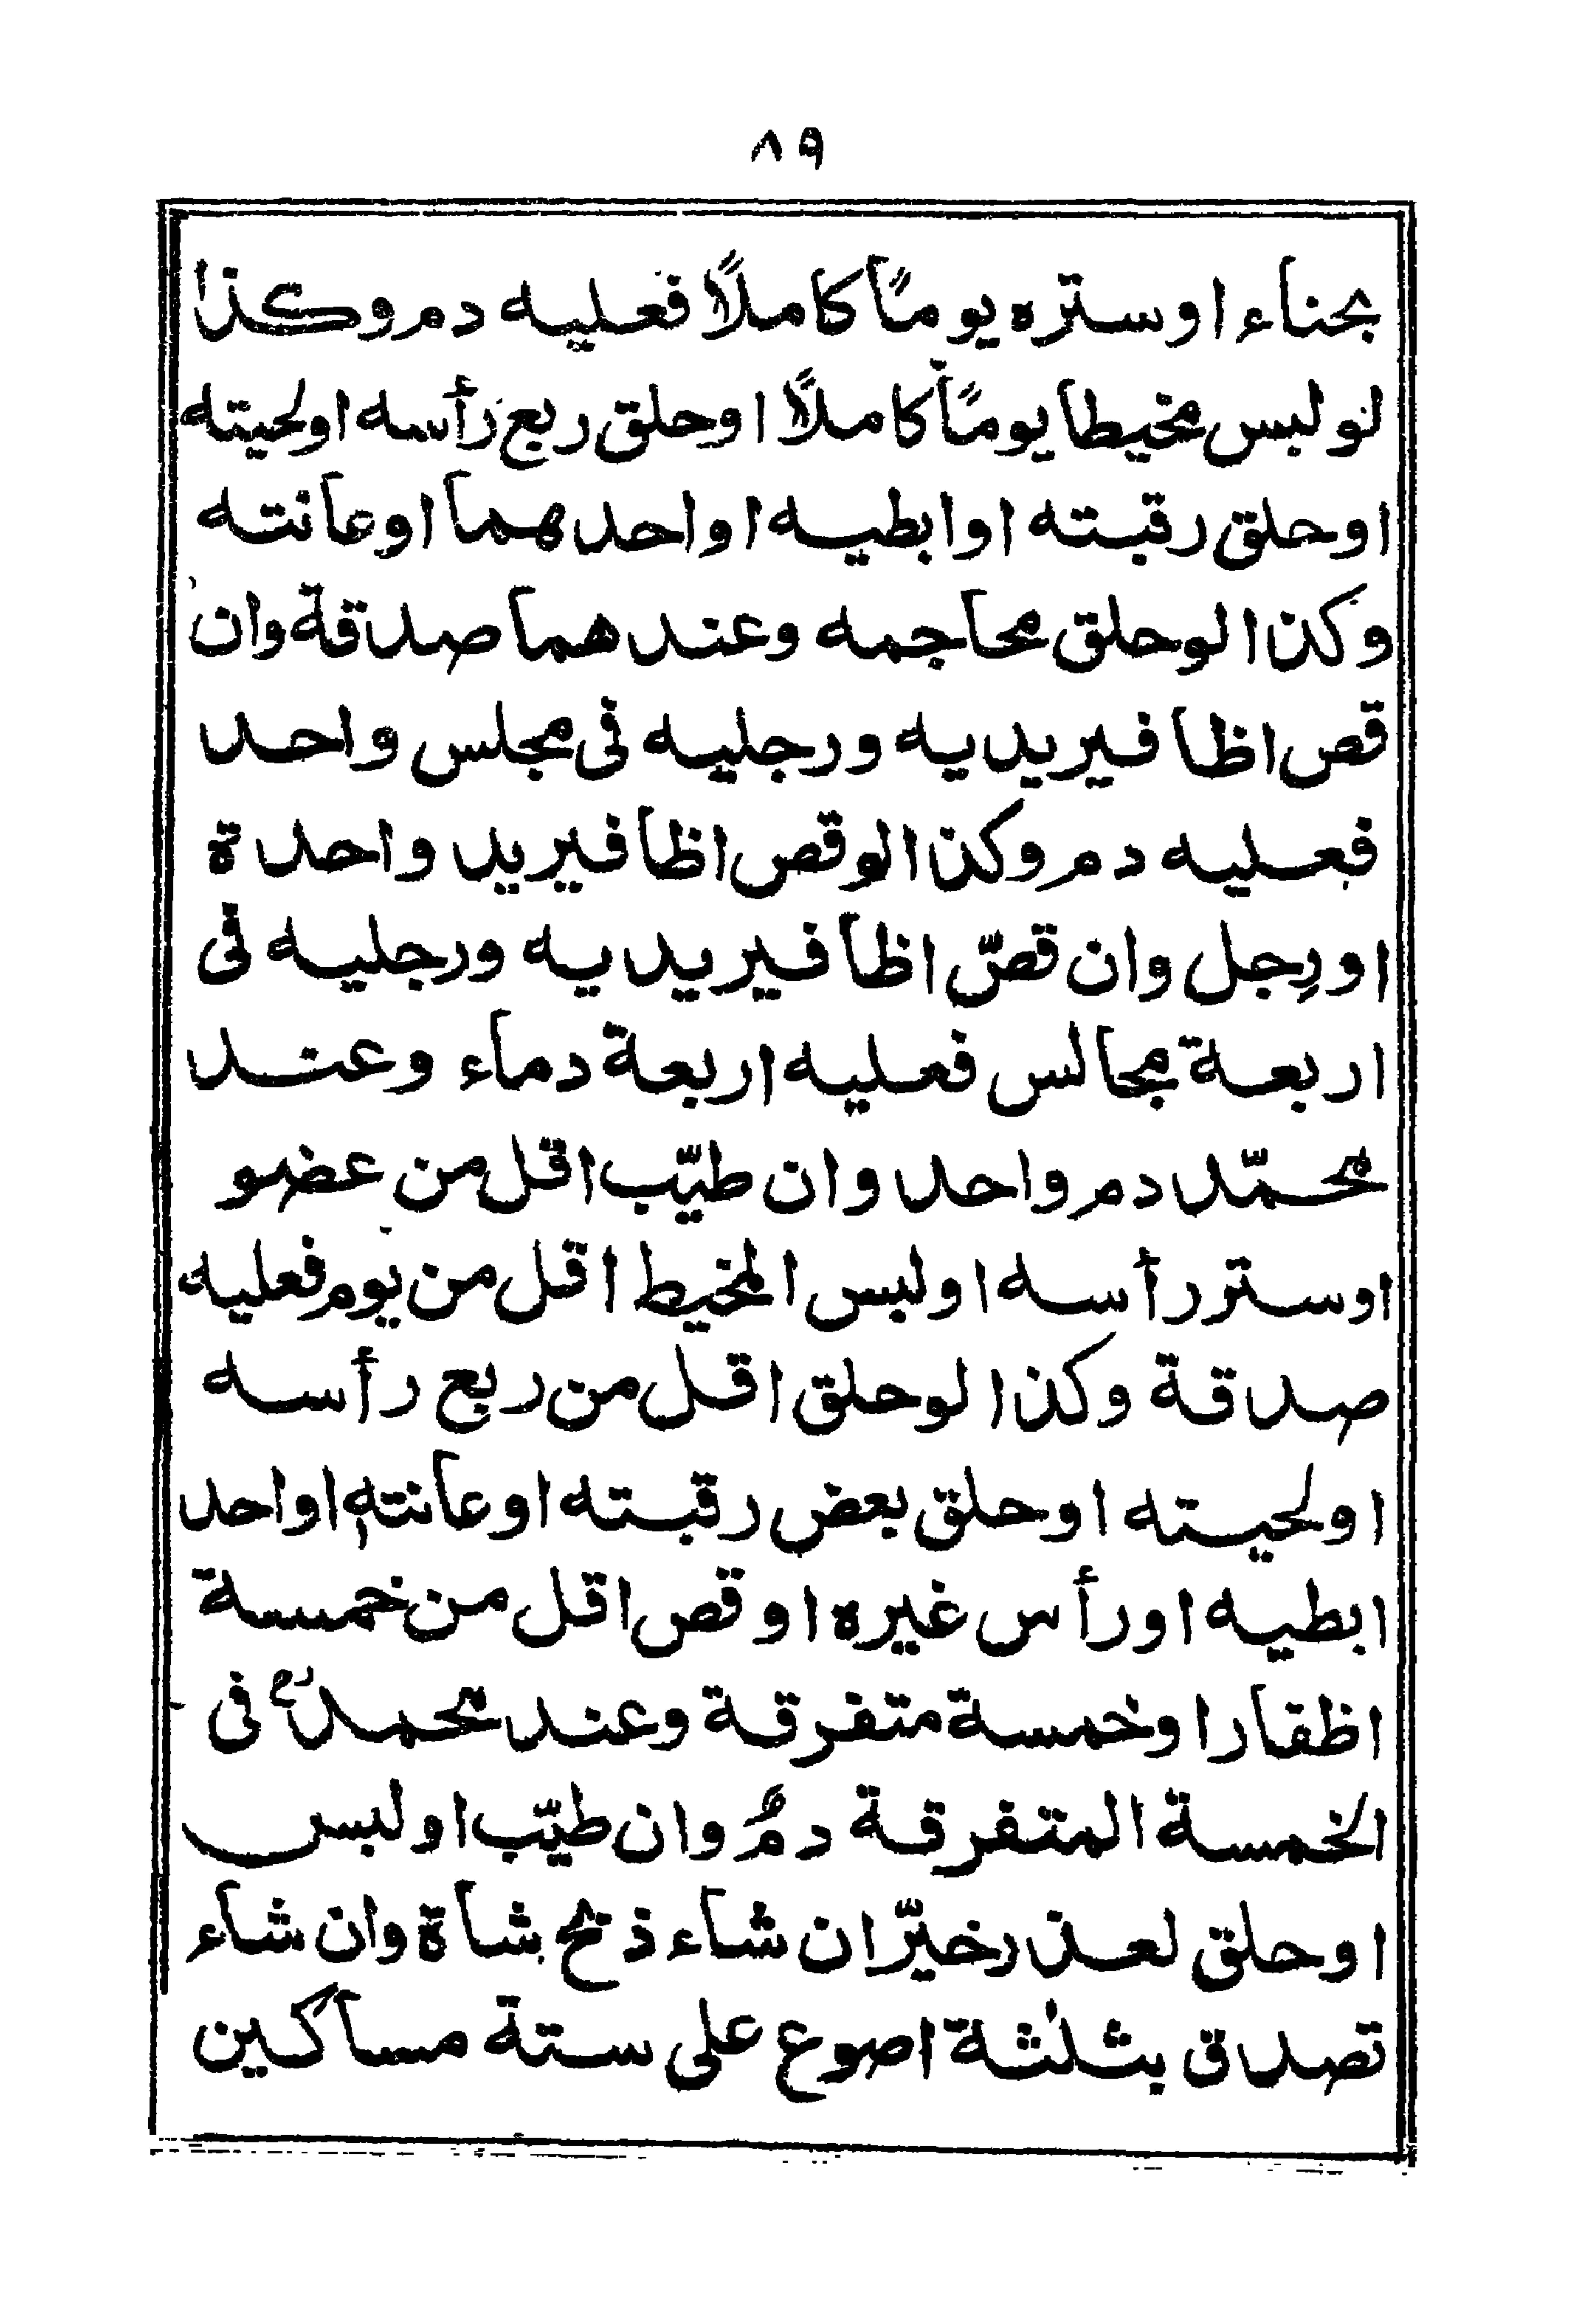 ٨٩
بحناء او ستره يومًا كاملًا فعليه دم وكذا
لو لبس مخيطا يومًا كاملًا او حلق ربع رأسه او لحيته
او حلق رقبته او ابطيه او احدهما او عانته
وكذا لو حلق محاجمه وعندهما صدقة وان
قص اظافير يديه ورجليه فى مجلس واحد
فعليه دم وكذا لو قص اظافير يد واحدة
او رِجل وان قصّ اظافير يديه ورجليه فى
اربعة مجالس فعليه اربعة دماء وعند
محمّد دم واحد وان طيّب اقل من عضو
او ستر رأسه او لبس المخيط اقل من يوم فعليه
صدقة وكذا لو حلق اقل من ربع رأسه
او لحيته او حلق بعض رقبته او عانتهٖ او احد
ابطيه او رأس غيره او قص اقل من خمسة
اظفار او خمسة متفرقة وعند محمدؒ فى
الخمسة المتفرقة دمٌ وان طيّب او لبس
او حلق لعذر خيّر ان شاء ذبح شاة وان شاء
تصدق بثلٰثة اصوع على ستة مساكين